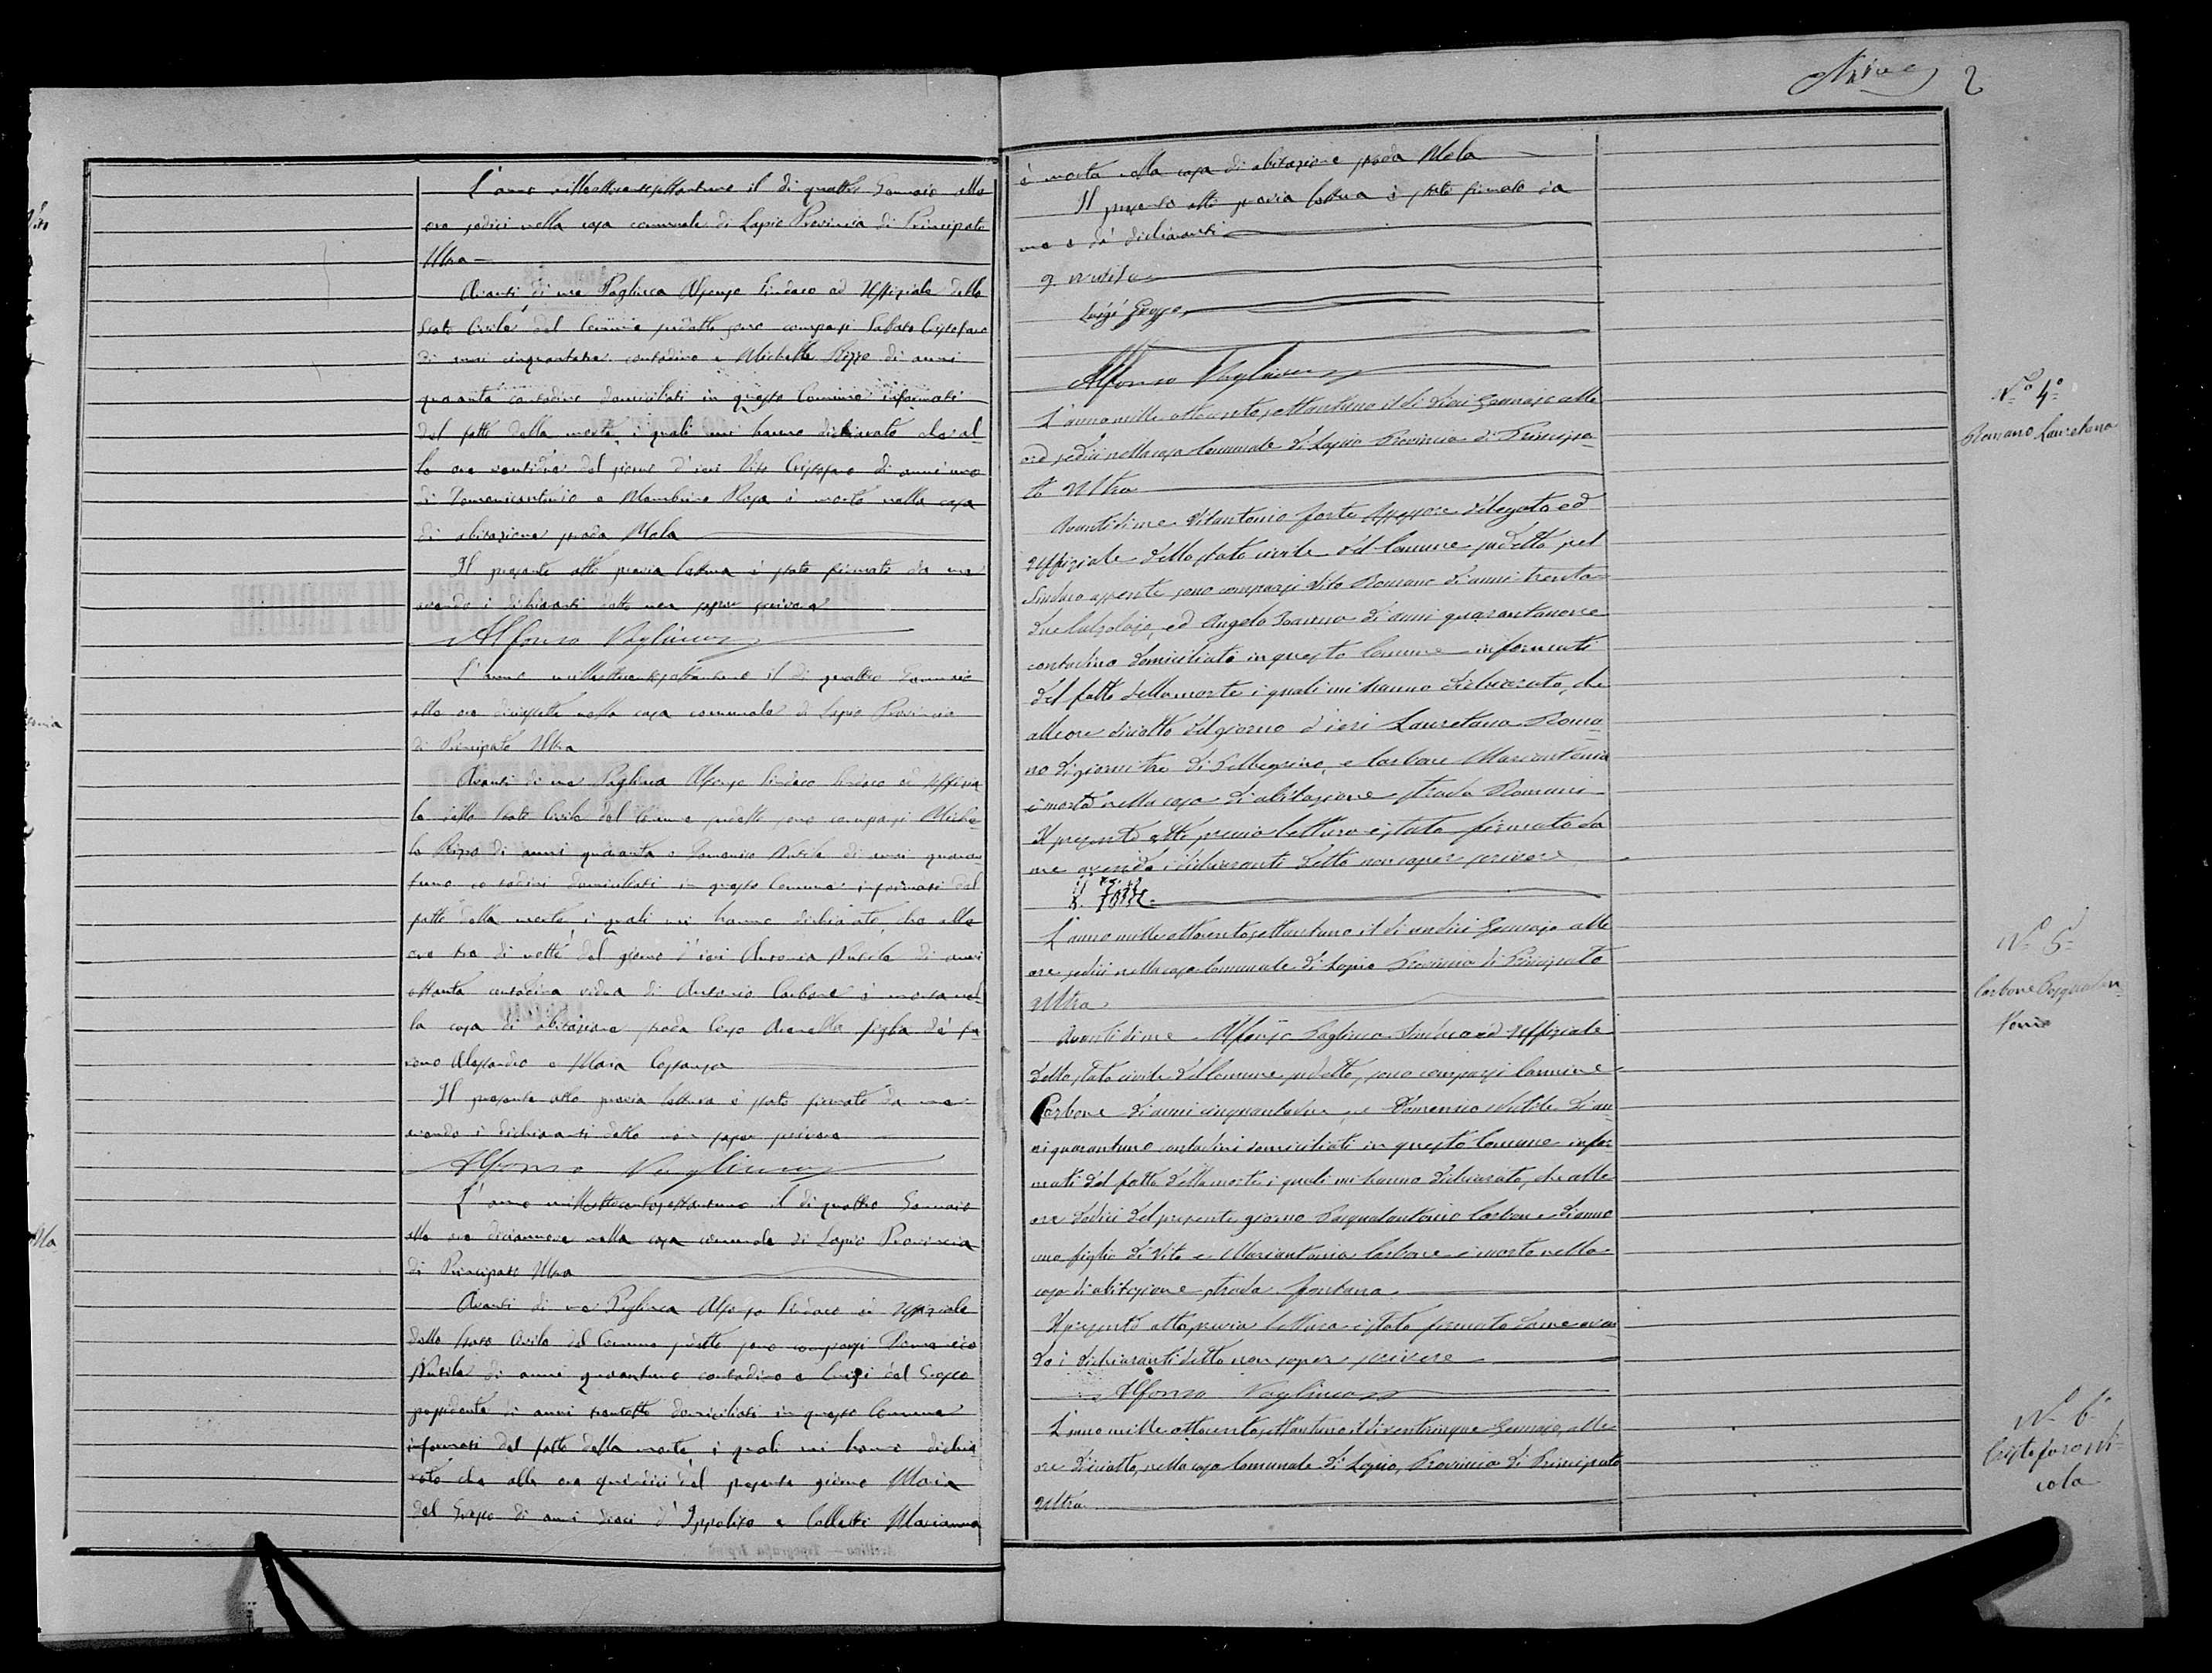 L'anno milleottocentosettantuno il dì quattro Gennaio alle
ore sedici nella casa comunale di Lapio Provincia di Principato
Ultra
Avanti di me Pagliuca Alfonso Sindaco ed Uffiziale dello
Stato Civile del Comune sudetto sono comparsi Sabato Cristofaro
di anni cinquantatre contadino e Michele Rizzo di anni
quaranta contadino domiciliati in questo Comune informati
del fatto della morte, i quali mi hanno dichiarato che al-
le ore ventidue del giorno d'ieri Vito Cristofaro di anni uno
di Domenicantonio e Rosa è morto nella casa
di abitazione strada Mela
Il presente atto previa lettura è stato firmato da me
avendo i dichiaranti detto non saper scrivere
Alfonso Pagliuca
L'anno milleottocentosettantuno il dì quattro Gennaio
alle ore diciassette nella casa comunale di Lapio Provincia
di Principato Ultra
Avanti di me Pagliuca Alfonso Sindaco Sindaco ed Uffizia
le dello Stato Civile del Comune sudetto sono comparsi Miche-
le Rizzo di anni quaranta e Domenico Nutile di anni quaran
tuno contadini domiciliati in questo Comune informati del
fatto della morte, i quali mi hanno dichiarato, che alle
ore tre di notte del giorno d'ieri Antonia Nutile di anni
ottanta contadina vedova di Antonio Carbone è morta nel
la casa di abitazione strada figlia de' fu
rono Alessandro e Maria Costanza
Il presente atto previa lettura è stato firmato da me
avendo i dichiaranti detto non saper scrivere
Alfonso Pagliuca
L'anno milleottocentosettantuno il dì quattro Gennaio
alle ore diciannove nella casa comunale di Lapio Provincia
di Principato Ultra
Avanti di me Pagliuca Alfonso Sindaco ed Uffiziale
dello Stato Civile del Comune sudetto sono comparsi Domenico
Nutile di anni quarantuno contadino e Luigi del Grosso
possidente di anni trentotto domiciliati in questo Comune
informati del fatto della morte, i quali mi hanno dichia
rato che alle ore quindici del presente giorno Maria
del Grosso di anni dieci d'Ippolito e Colletti Marianna
2
è morta nella casa di abitazione strada Mela
Il presente atto previa lettura è stato firmato da
me e da' dichiaranti
D. Nutile
Luigi Grosso
Alfonso Pagliuca
L'anno mille ottocentosettantuno il dì dieci Gennajo alle
ore sedici nella casa Comunale di Lapio Provincia di Principa-
to Ultra
Avanti di me Vitantonio Forte Assessore delegato ed
Uffiziale dello stato civile del Comune sudetto pel
Sindaco assente sono comparsi Vito Romano di anni trenta
due calzolajo, ed Angelo di anni quarantanove
contadino domiciliati in questo Comune informati
del fatto della morte i quali mi hanno dichiarato, che
alle ore diciotto del giorno d'ieri Lauretana Roma-
no di giorni tre di Pellegrino, e Carbone Mariantonia
è morta nella casa di abitazione strada Romani
Il presente atto previa lettura è stato firmato da
me avendo i dichiaranti detto non saper scrivere
V. Forte
L'anno mille ottocentosettantuno il dì undici Gennajo alle
ore sedici nella casa Comunale di Lapio Provincia di Principato
Ultra
Avanti di me Alfonso Pagliuca Sindaco ed Uffiziale
dello stato civile del Comune sudetto, sono comparsi Carmine
Carbone di anni cinquantadue, e Domenico Nutile di an
ni quarantuno contadini domiciliati in questo Comune infor
mati del fatto della morte i quali mi hanno dichiarato, che alle
ore dodici del presente giorno Pasqualantonio Carbone di anno
uno figlio di Vito e Mariantonia Carbone è morto nella
casa di abitazione strada fontana
Il presente atto previa lettura è stato firmato da me aven
do i dichiaranti detto non saper scrivere
Alfonso Pagliuca
L'anno mille ottocentosettantuno il dì venticinque Gennajo, alle
ore diciotto, nella casa Comunale di Lapio, Provincia di Principato
Ultra
N.° 4°
Romano Lauretana
N.° 5°
Carbone Pasqualan
tonio
N.° 6°
Cristofaro Ni-
cola